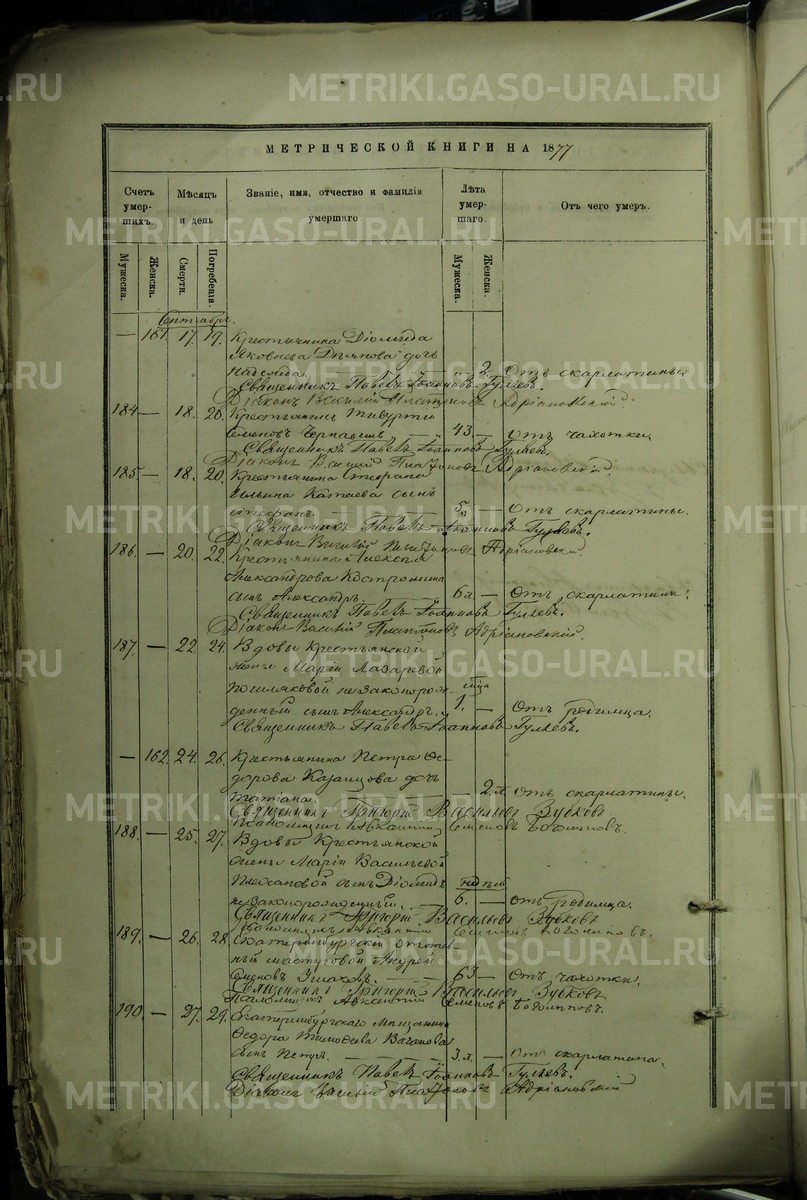 МЕТРИЧЕСКОЙ КНИГИ НА 1877
Счетъ умер- шихъ.
Мѣсяцъ и день
Званіе, имя, отчество и фамилія умершаго.
Лѣта умер- шаго.
Отъ чего умеръ.
Мужеска. Женска. Смерти. Погребенія. Мужеска. Женска.
Сентябрь.
— 161. 17. 19. Крестьянина Діомида
Яковлева дочь
Надежда. — — 2. Отъ скарлатины.
Священникъ Павелъ Іоанновъ Гуляевъ.
Діаконъ Василій Платоновъ Адріановскій
184. — 18. 20. Крестьянинъ Тивуртій
Семеновъ 43. — Отъ чахотки.
Священникъ Павелъ Іоанновъ Гуляевъ.
Діаконъ Василій Платоновъ Адріановскій.
185. — 18. 20. Крестьянина Стефана
Ильина Катаева сынъ
Стефанъ. — 5. — Отъ скарлатины.
Священникъ Павелъ Іоанновъ Гуляевъ.
Діаконъ Василій Платоновъ Адріановскій
186. — 20. 22. Крестьянина Алексея
Александрова Костромина
сынъ Александръ. — 6 л. — Отъ скарлатины.
Священникъ Павелъ Іоанновъ Гуляевъ.
Діаконъ Василій Платоновъ Адріановскій.
187. — 22. 24. Вдовы Крестьянской
жены Маріи Лазаревой
незаконорож- мѣца
денный сынъ Александръ. 1. — Отъ родимца.
Священникъ Павелъ Іоанновъ Гуляевъ.
— 162. 24. 26. Крестьянина Петра Ѳе-
дорова Казанцова дочь
Татіана. — 2 л. Отъ скарлатины.
Священникъ Григорій Васильевъ Зубковъ
Псаломщикъ Авксентій Семеновъ Богомоловъ.
188. — 25. 27. Вдовы Крестьянской
жены Маріи Васильевой
Плехановой сынъ Діомидъ недѣль
незаконорожденный. — 6. — отъ родимца.
Священникъ Григорій Васильевъ Зубковъ
Псаломщикъ Авксентій Семеновъ Богомоловъ.
189. — 26. 28. Екатеринбургскій отстав-
ный мастеровой Андрей
Семеновъ — 63 — Отъ чахотки.
Священникъ Григорій Васильевъ Зубковъ
Псаломщикъ Авксентій Семеновъ Богомоловъ.
190. — 27. 29. Екатеринбургскаго мѣщанина
Ѳедора Тимоѳеева Ваганова
сынъ Петръ. — — — 3. л. — Отъ скарлатина.
Священникъ Павелъ Іоанновъ Гуляевъ.
Діаконъ Василій Платоновъ Адріановскій
METRIKI.GASO-URAL.RU